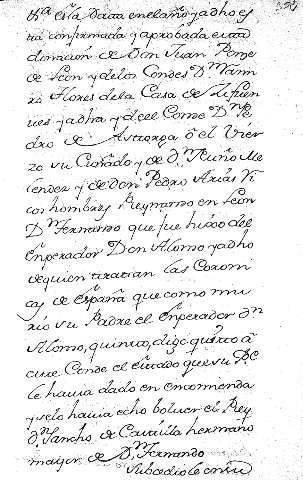 tra esta Data en el año ya dho es
ta confirmada y aprobada esta
donacion de Don Juan Ponze
de Leon y de los Condes Dn Rami
ro Flores de la Casa de Zifuen
tes ya dha y de el Conde Dn Pe
dro de Astorga o el Vier
zo su Cuñado y de Dn Nuño Me
lendez y de Don Pedro Arias Ri
cos hombres Reynando en Leon
Dn Fernando que fue hijo del
Enperador Don Alonso ya dho
de quien tratan las Coroni
cas de España que como mu
rio su Padre el Enperador Dn
Alonso, quinto, digo quinto a
este Conde el estado que su Pe
le havia dado en encomienda
y se lo havia echo bolver el Rey
Dn Sancho de Castilla hermano
mayor de Dn Fernando
Subcedio le en su